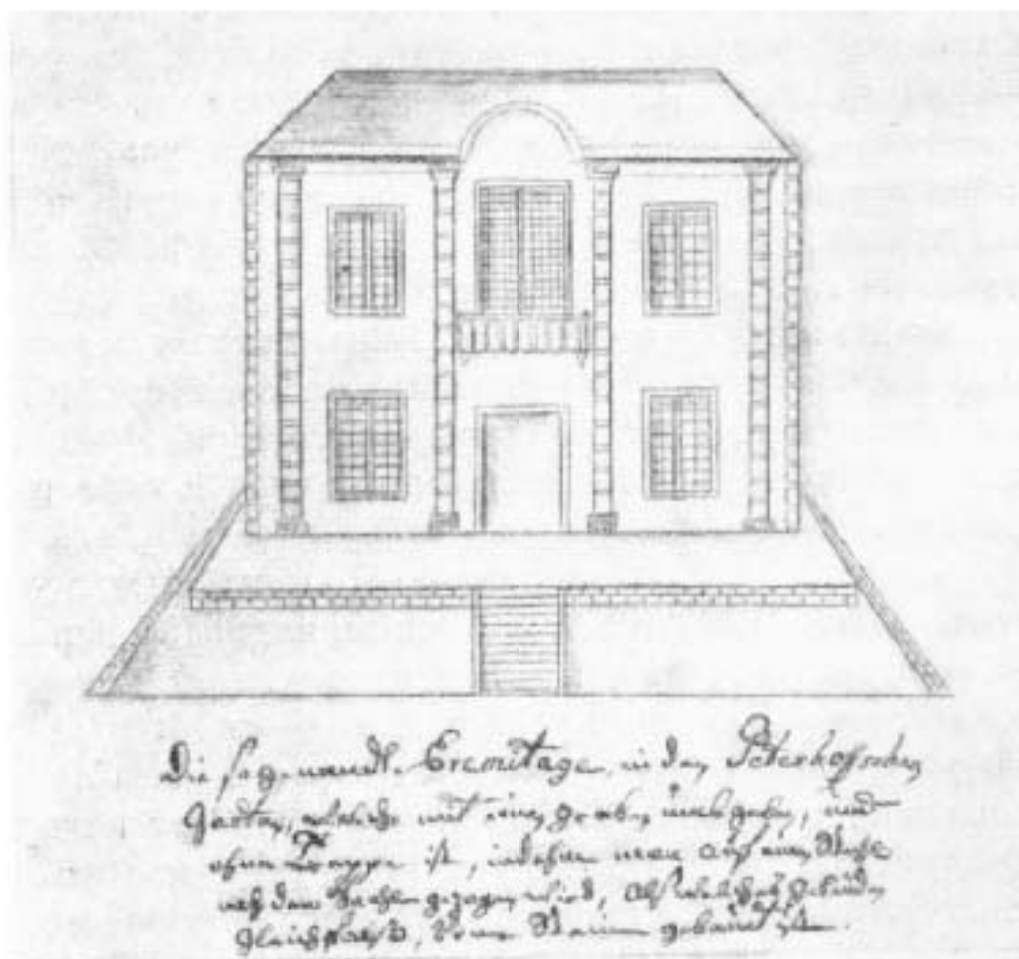 Die sogenandte Eremitage, in den Peterhoffschen
Garten, welche mit einen graben umbgeben, und
ohne Treppe ist, indehm man auf einen Stuhl
nach dem Sachl gezogen wird, welches gebäude
gleichfalß, von Stein gebauet ist.